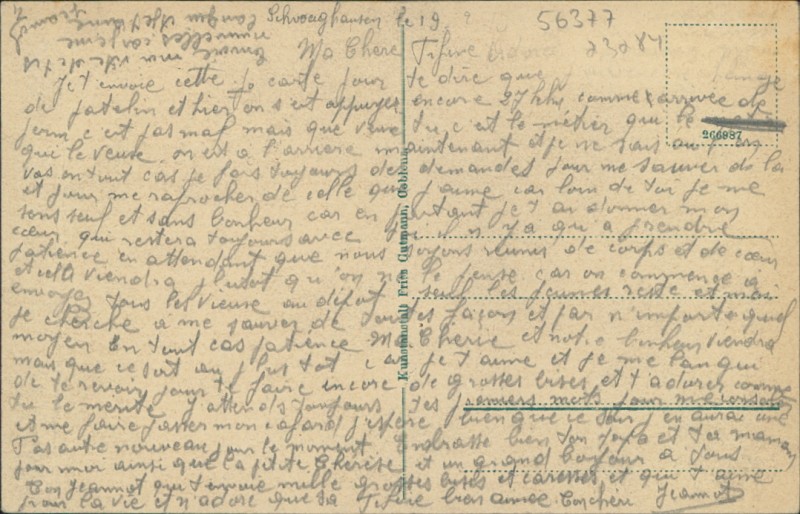 Schwaighausen le 19
56377
23084
Ma Cherie Fifine adorée
Je t envoie cette jo carte pour te dire que
de patelin et hier on s est appuyes encore 27 klm comme arrivee de
ferm c est pas mal mais que veux tu, c est le métier qui le
qui le veuse. on est a l arriere maintenant et je ne sais ou je
vas en tout cas je fais toujours des demandes pour me sauver de la
et pour me raprocher de celle que j aime car loin de toi je me
sens seul et sans bonheur car en partant je t ai donner mon
cœur qui restera toujours avec toi il n y a qu a prendre
patience en attendant que nous soyons reunis de corps et de cœur
et cela viendra plutot qu on ne le pense car on commence à
envoyer tous les vieuse au dépot seul les jeunes reste et moi
je cherche a me sauver de toutes façons et par n importe quel
moyen En tout cas patience Ma Cherie et notre bonheur viendra
mais que ce soit au plus tot car je t aime et je me langui
de te revoir pour te faire encore de grosses bises et t adorer comme
tu le merite J attends toujours tes premiers mots pour me consoler
et me faire passer mon cafard j espere bien que ce soir j en aurai une
Pas autre nouveau pour le moment Embrasse bien ton papa et ta maman
pour moi ainsi que la ptite Thérèse et un grand bonjour a tous
Ton Jeannot qui t envoie mille grosses bises et caresses et qui t aime
pour la vie et n adore que sa Fifine bien aimée Ton chéri Jeannot
266987
Kunstanstalt Fritz Gutmann, Coblenz